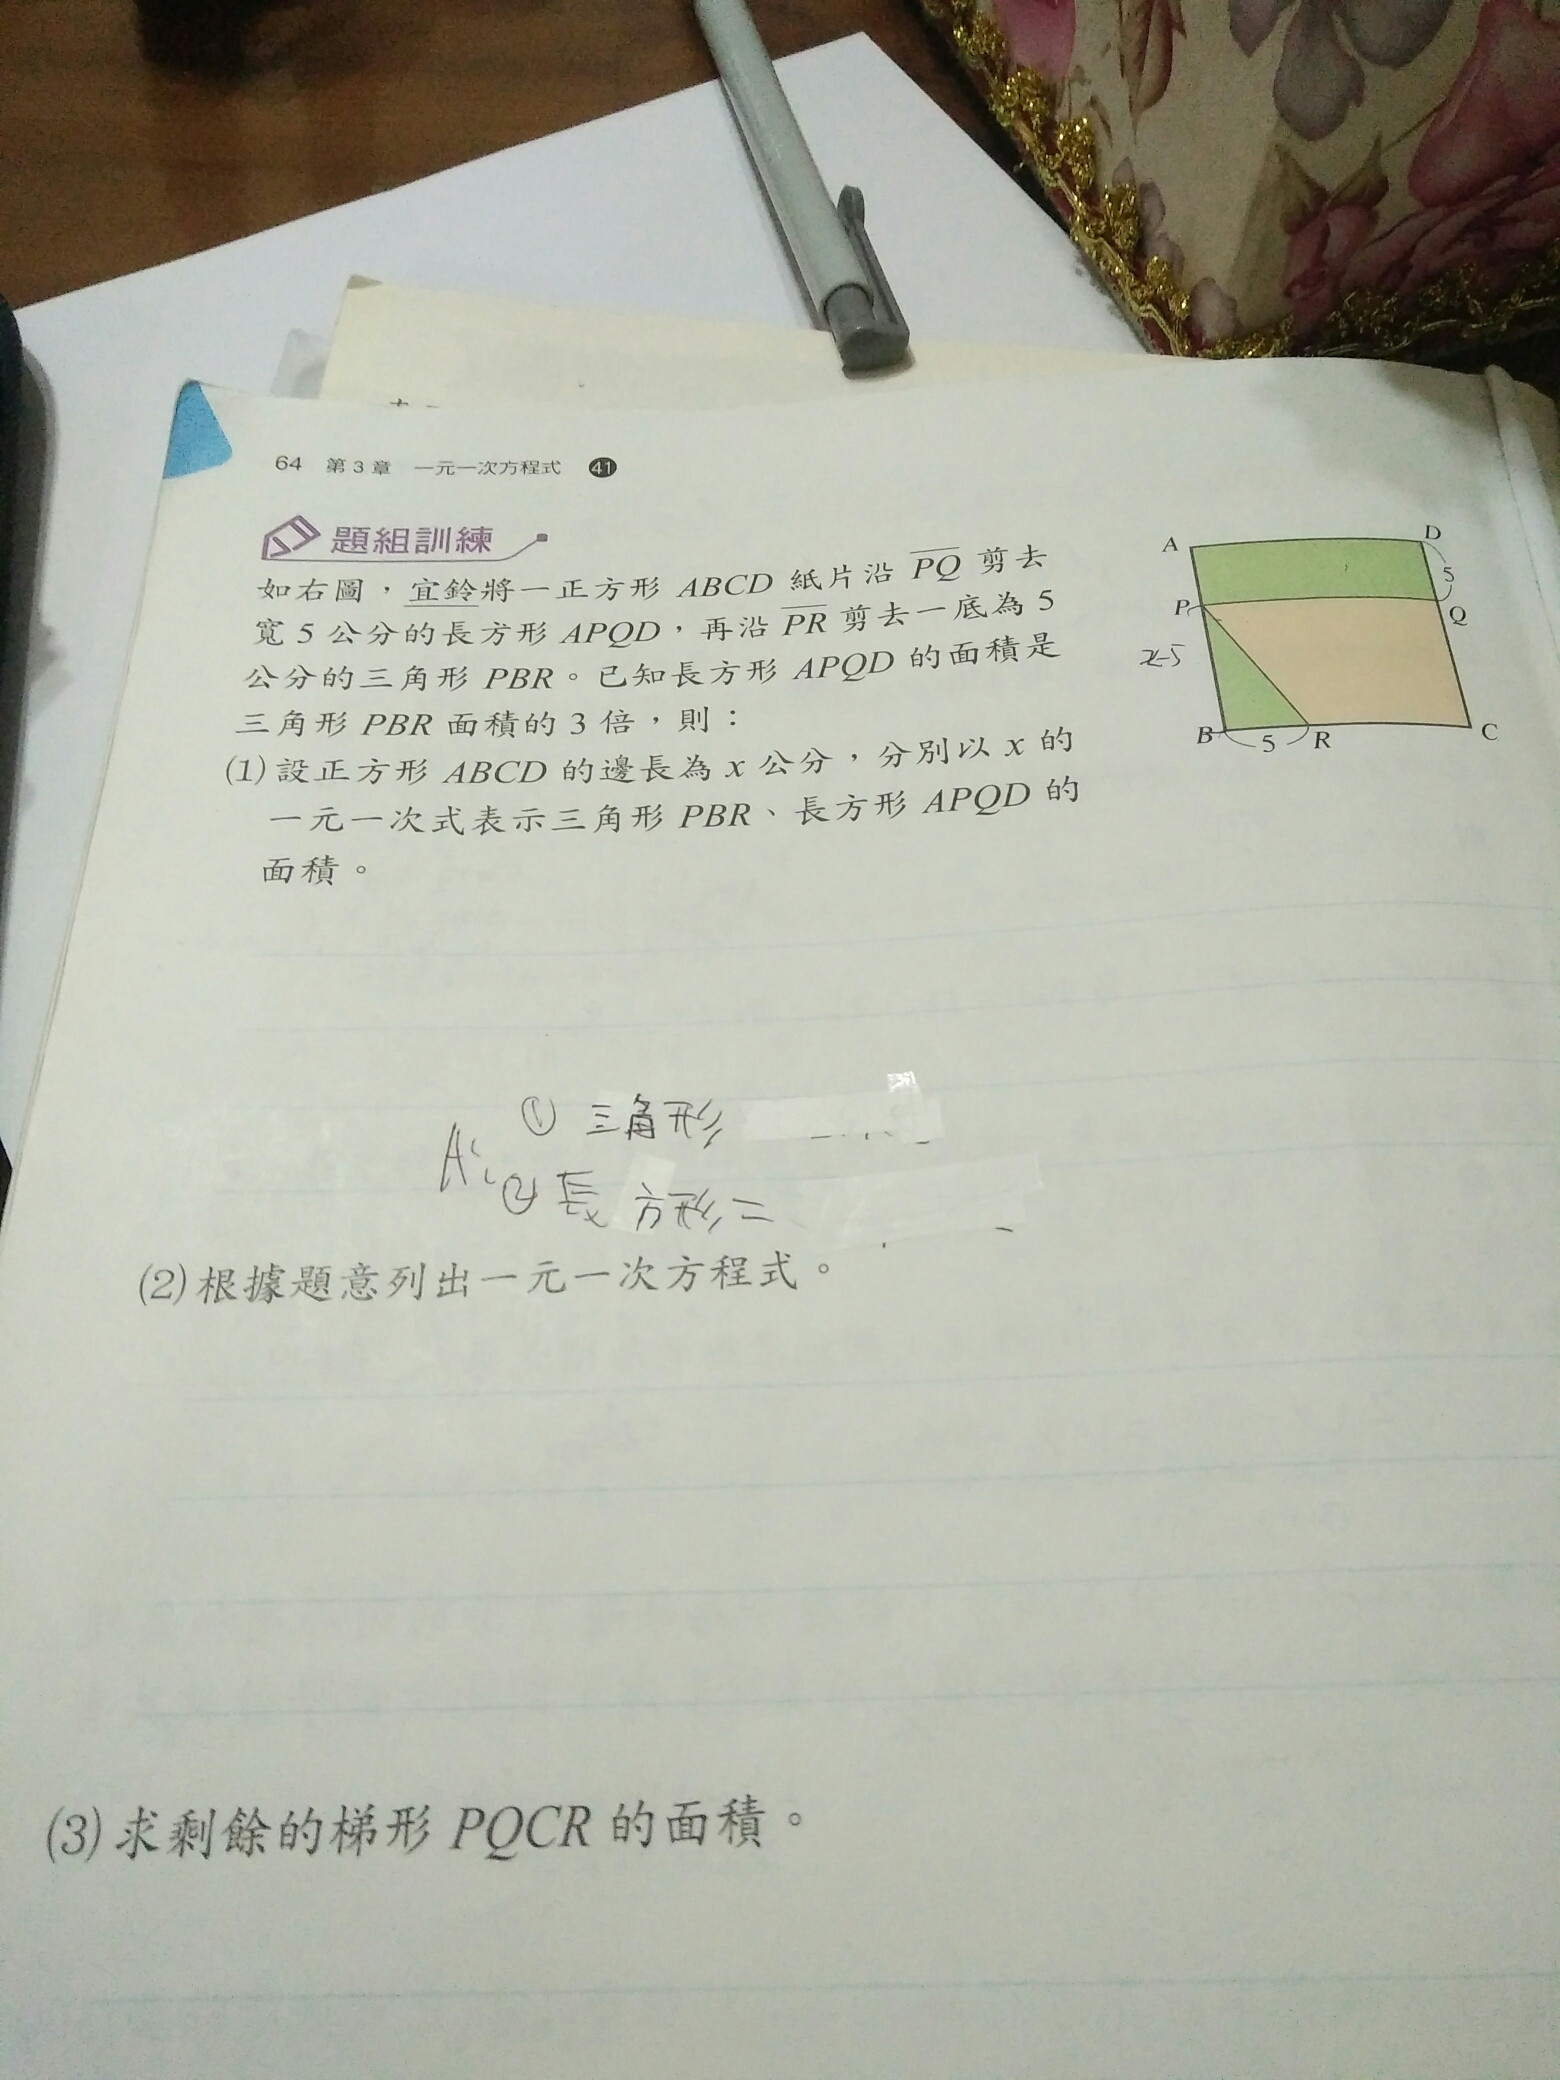 64 第3章 一元一次方程式 41
題組訓練
如右圖，宜鈴將一正方形 ABCD 紙片沿 PQ 剪去
寬 5 公分的長方形 APQD，再沿 PR 剪去一底為 5
公分的三角形 PBR。已知長方形 APQD 的面積是
三角形 PBR 面積的 3 倍，則：
(1)設正方形 ABCD 的邊長為 x 公分，分別以 x 的
一元一次式表示三角形 PBR、長方形 APQD 的
面積。
A
D
5
P
Q
x-5
B
5
R
C
A: ① 三角形
② 長方形=
(2)根據題意列出一元一次方程式。
(3)求剩餘的梯形 PQCR 的面積。